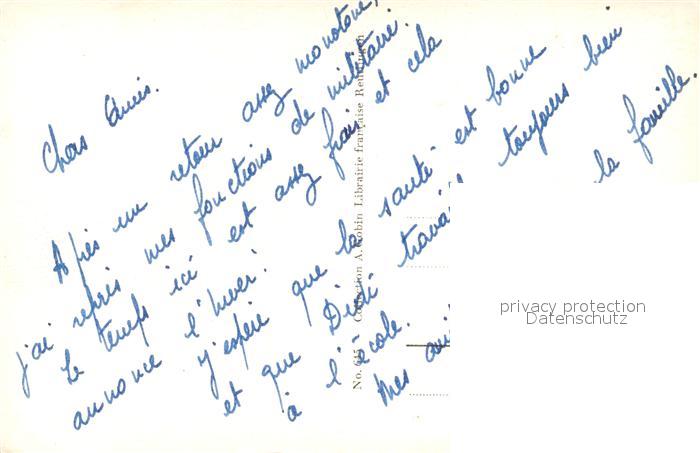 Chers Amis.
Après un retour assez monotone,
j'ai repris mes fonctions de militaire.
Le temps ici est assez frais et cela
annonce l'hiver.
J'espère que la santé est bonne
et que Dédé travaille toujours bien
à l'école.
Mes ami la famille.
No. 645 Collection A. Gobin Librairie française Reutlingen
privacy protection
Datenschutz